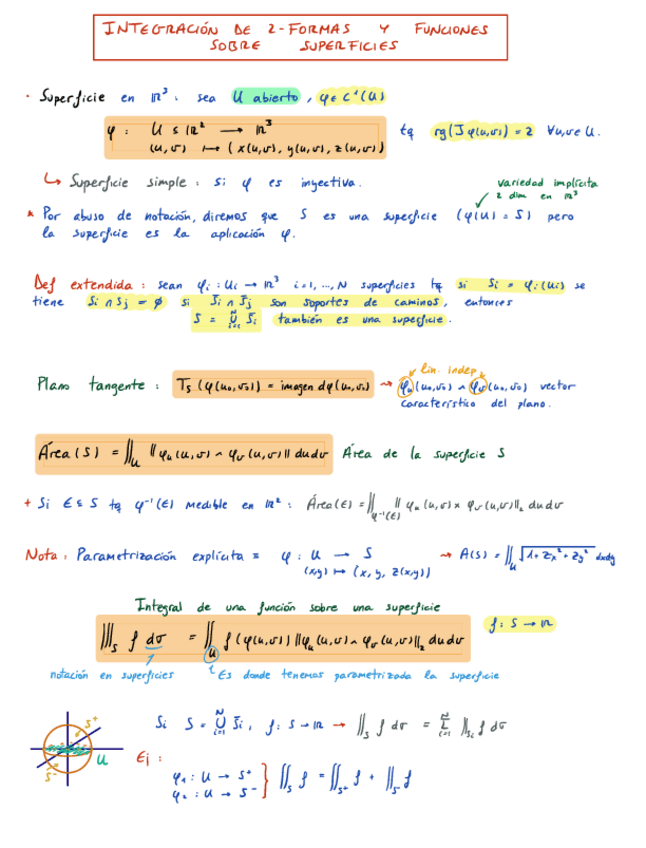 INTEGRACIÓN DE 2-FORMAS Y FUNCIONES
SOBRE SUPERFICIES
· Superficie en ℝ³: sea U abierto, φ ∈ C¹(U)
φ : U ⊆ ℝ² → ℝ³ tq rg(Jφ(u,v)) = 2 ∀u,v ∈ U.
(u,v) ↦ (x(u,v), y(u,v), z(u,v))
↳ Superficie simple: si φ es inyectiva.
variedad implícita
2 dim en ℝ³
* Por abuso de notación, diremos que S es una superficie (φ(U) = S) pero
la superficie es la aplicación φ.
Def extendida: sean φi : Ui → ℝ³ i=1, ..., N superficies tq si Si = φi(Ui) se
tiene Si ∩ Sj = ∅ si S̄i ∩ S̄j son soportes de caminos, entonces
S = ⋃ᵢ₌₁ᴺ S̄i también es una superficie.
lin. indep
Plano tangente: Ts(φ(u₀,v₀)) = imagen dφ(u₀,v₀) → φu(u₀,v₀) ∧ φv(u₀,v₀) vector
característico del plano.
Área(S) = ∬_U ‖φu(u,v) ∧ φv(u,v)‖ dudv Área de la superficie S
+ Si E ⊆ S tq φ⁻¹(E) medible en ℝ²: Área(E) = ∬_φ⁻¹(E) ‖φu(u,v) × φv(u,v)‖₂ dudv
Nota: Parametrización explícita = φ : U → S → A(S) = ∬_U √(1+Zx²+Zy²) dxdy
(x,y) ↦ (x, y, z(x,y))
Integral de una función sobre una superficie
∭_S f dσ = ∬_U f(φ(u,v)) ‖φu(u,v) ∧ φv(u,v)‖₂ dudv f: S → ℝ
notación en superficies Es donde tenemos parametrizada la superficie
Si S = ⋃ᵢ₌₁ᴺ S̄i, f: S → ℝ → ∬_S f dσ = Σᵢ₌₁ᴺ ∬_Si f dσ
S⁺
U
S⁻
Ej:
φ₁ : U → S⁺
φ₂ : U → S⁻ } ∬_S f = ∬_S⁺ f + ∬_S⁻ f